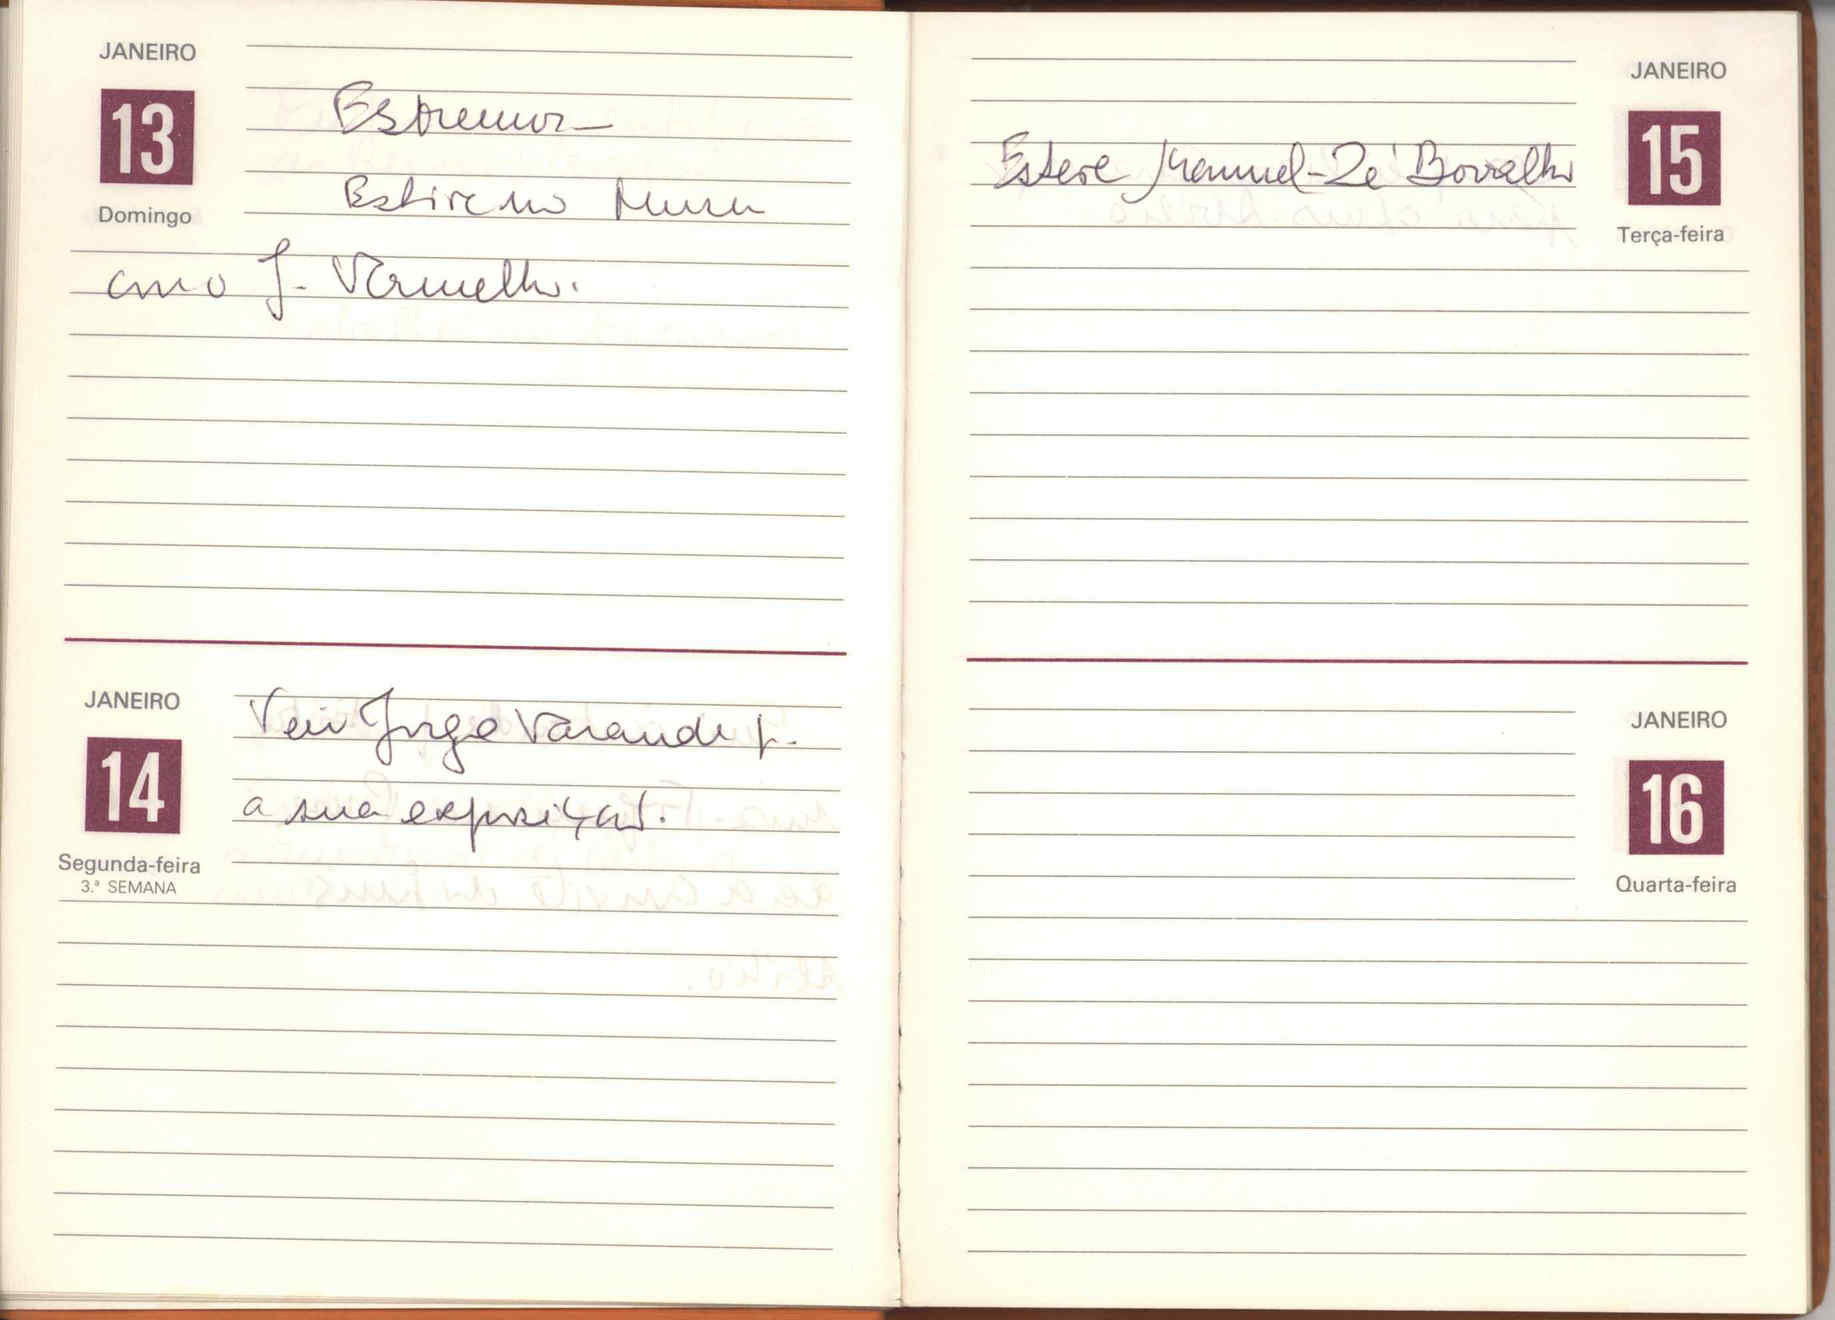 JANEIRO
13
Domingo
Estremoz
Estive no Museu
com J. Vermelho.
JANEIRO
14
Segunda-feira
3.ª SEMANA
Veio Jorge Varanda p.
a sua exposição.
JANEIRO
15
Terça-feira
Esteve Manuel-Zé Borralho
JANEIRO
16
Quarta-feira